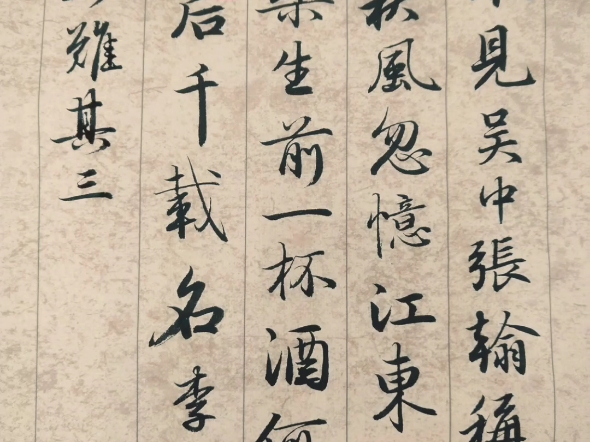 見吳中張翰稱
秋風忽憶江東
樂生前一杯酒何
后千載名李
難其三